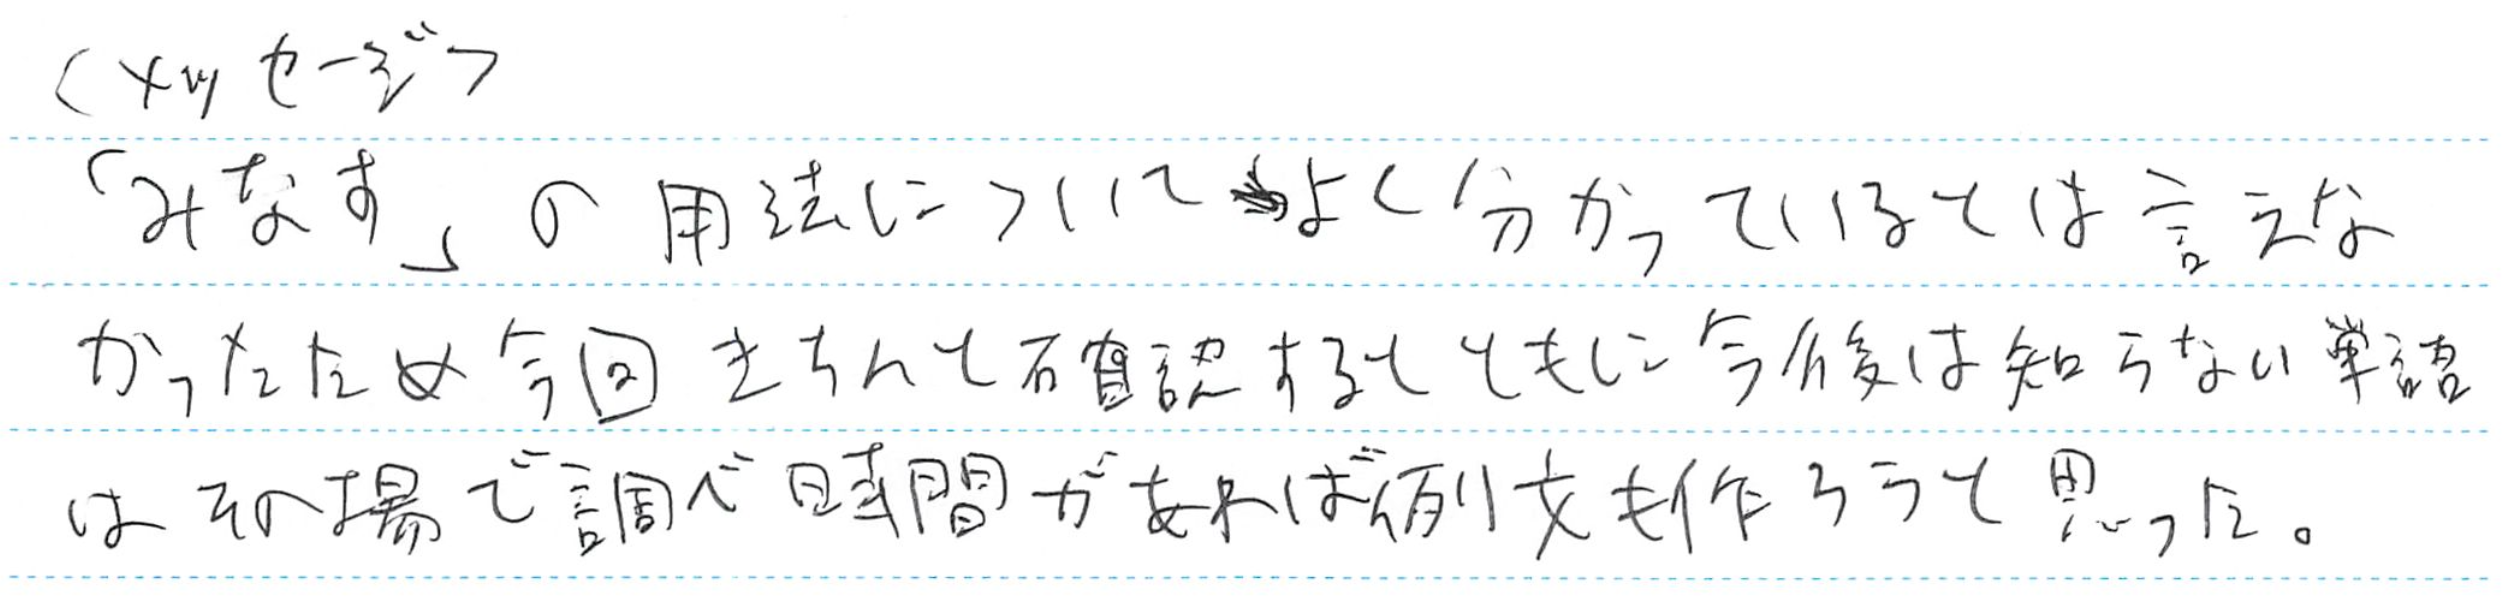 〈メッセージ〉
「みなす」の用法についてよく分かっているとは言えな
かったため今回きちんと確認するとともに今後は知らない単語
はその場で調べ時間があれば例文も作ろうと思った。